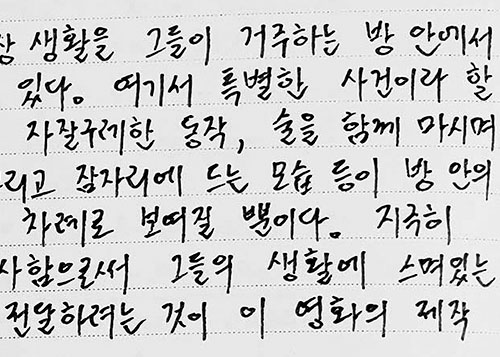 상 생활을 그들이 거주하는 방 안에서
있다. 여기서 특별한 사건이라 할
자잘구레한 동작, 술을 함께 마시며
리고 잠자리에 드는 모습 등이 방 안의
차례로 보여질 뿐이다. 지극히
사함으로써 그들의 생활에 스며있는
전달하려는 것이 이 영화의 제작